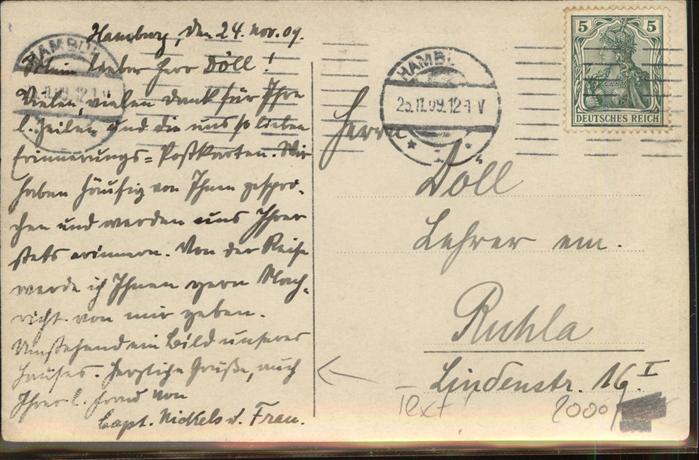 Hamburg, den 24. Nov. 09.
Mein lieber Herr Döll!
Vielen, vielen Dank für Ihre
l. Zeilen und die uns so lieben
Erinnerungs=Postkarten. Wir
haben häufig von Ihnen gespro-
chen und werden uns Ihrer
stets erinnern. Von der Reise
werde ich Ihnen gern Nach-
richt von mir geben.
Umstehend ein Bild unseres
Hauses. Herzliche Grüße, auch
Ihrer l. Frau von
Capt. Nickels u. Frau.
HAMBURG
HAMBU
25.11.09.12-1 V
5 5
DEUTSCHES REICH
Herrn
Döll
Lehrer em.
Ruhla
Lindenstr. 16. I
Text
2000